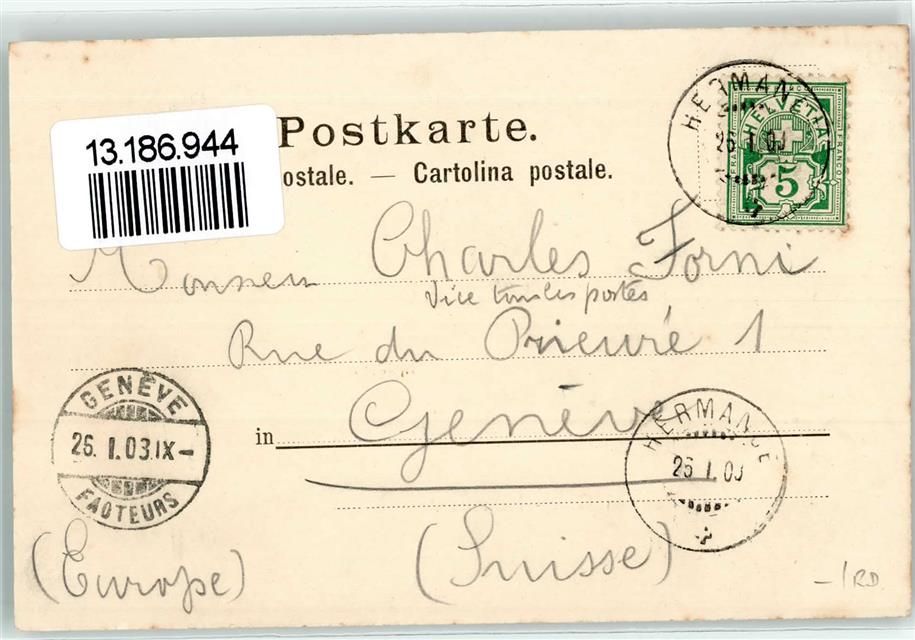 Postkarte.
13.186.944
ostale. — Cartolina postale.
HERMAN
26 I 03
HELVETIA
FRANCO
5
Monsieur Charles Forni
Vice tous les portes
Rue du Prieuré 1
in Genève
GENÈVE
26. I. 03. IX –
FACTEURS
HERMANCE
26 I 03
(Europe) (Suisse)
–/RD